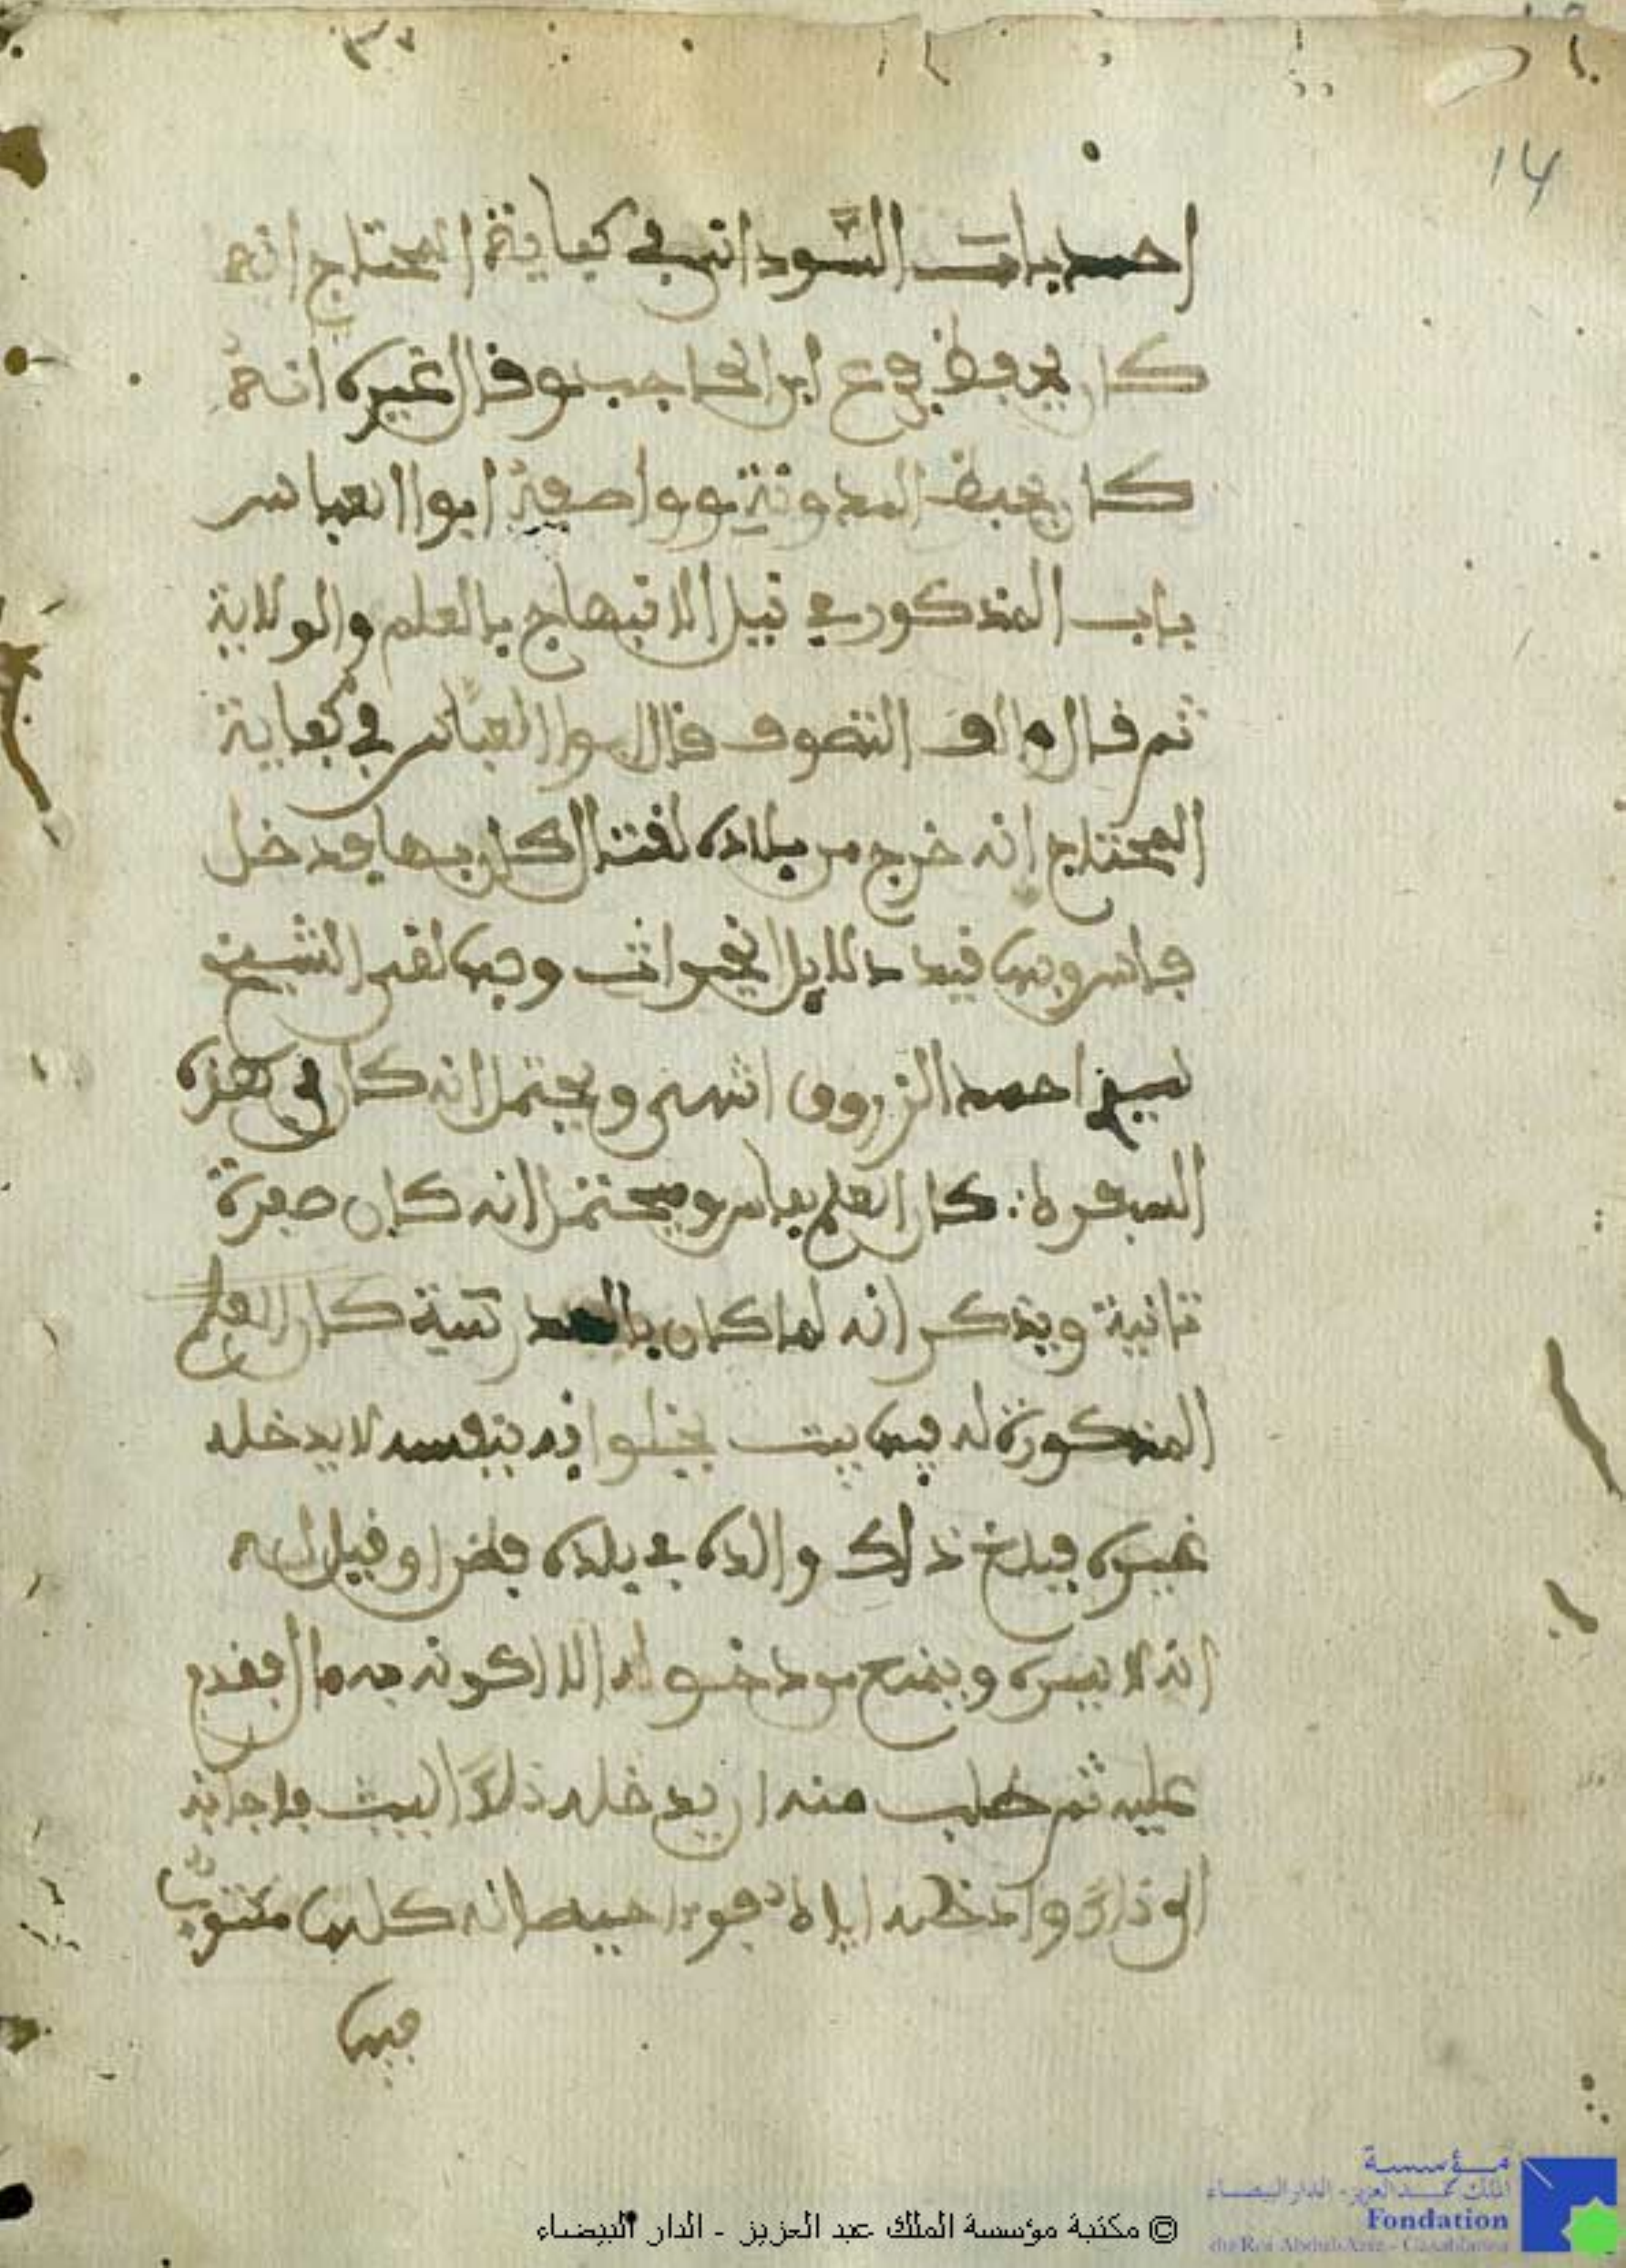 14
احمد باب السوداني في كفاية المحتاج انه
كان يحفظ فرع ابن الحاجب وقال غيره انه
كان يحفظ المدونة ووصفه ابوا العباس
باب المذكور في نيل الابتهاج بالعلم والولاية
ثم قال والف التصوف قال ابوا العباس في كفاية
المحتاج انه خرج من بلاده لقتال كان بها فدخل
فاس وبها قيد دلايل الخيرات وبها لقي الشيخ
احمد الزروق انتهى ويحتمل انه كان في هذه
السفرة كان العلم بفاس ويحتمل انه كان سفرة
ثانية ويذكر انه لما كان بالمدرسة كان العلم
المذكورة له فيها بيت يخلوا فيه بنفسه لا يدخله
غيره فبلغ ذلك والده في بلده وقيل له
انه لا يبيره ويمنع من دخوله الا لكونه به مال فقدم
عليه ثم طلب منه ان يدخله ذلك البيت فاجابه
الى ذلك وادخله اياه فوجد حيطانه كلها مكتوب
فيها
© مكتبة مؤسسة الملك عبد العزيز - الدار البيضاء
مؤسسة
الملك عبد العزيز - الدار البيضاء
Fondation
du Roi Abdul-Aziz - Casablanca